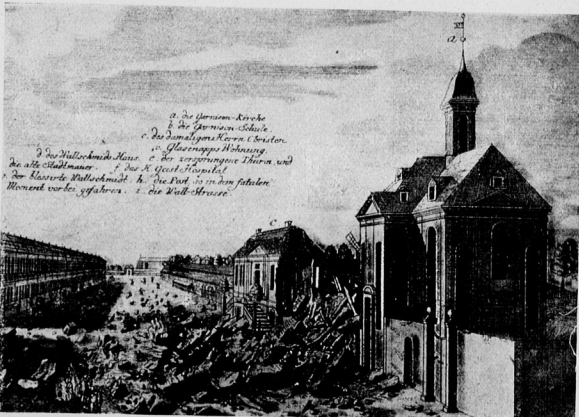 a. die Garnison-Kirche
b. die Garnison-Schule
c. des damaligen Herrn Obristen
v. Glasenapps Wohnung
d des Wallschmids Haus. e der zersprungene Thurm und
die alte Stadtmauer. f das H. Geist-Hospital
der blessirte Wallschmidt. h. die Post, so in dem fatalen
Moment vorbei gefahren. i. die Wall-Strasse
a
c